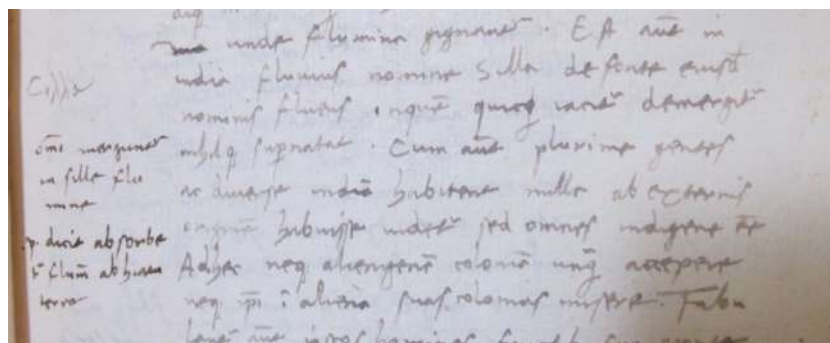 unde flumina gignant᷑. Est aut̄ in
india fluvius nomine Silla de fonte eiusd̄
nominis fluens inquē quicq̨ iacit᷑ demergit᷑
nihilq̨ sup̄natat. Cum aut̄ plurime gentes
ac diverse indiā habitent nulla ab externis
originē habuisse videt᷑ sed omnes indigene ēē
Adhec neq̨ alienigenē coloniā unq̄ accepere
neq̨ ip̄i ī aliena suas colonias misere. Fabu
lant᷑ aut̄ homines
Cilla
om̄ia mergunt᷑
in sille flu
mine
dicit absorbe
flum̄ ab
terra